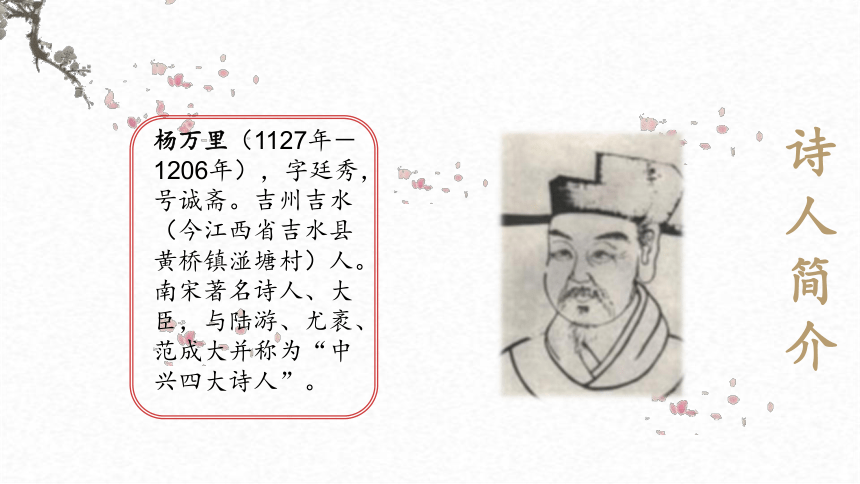 杨万里（1127年－
1206年），字廷秀，
号诚斋。吉州吉水
（今江西省吉水县
黄桥镇湴塘村）人。
南宋著名诗人、大
臣，与陆游、尤袤、
范成大并称为“中
兴四大诗人”。
诗人简介